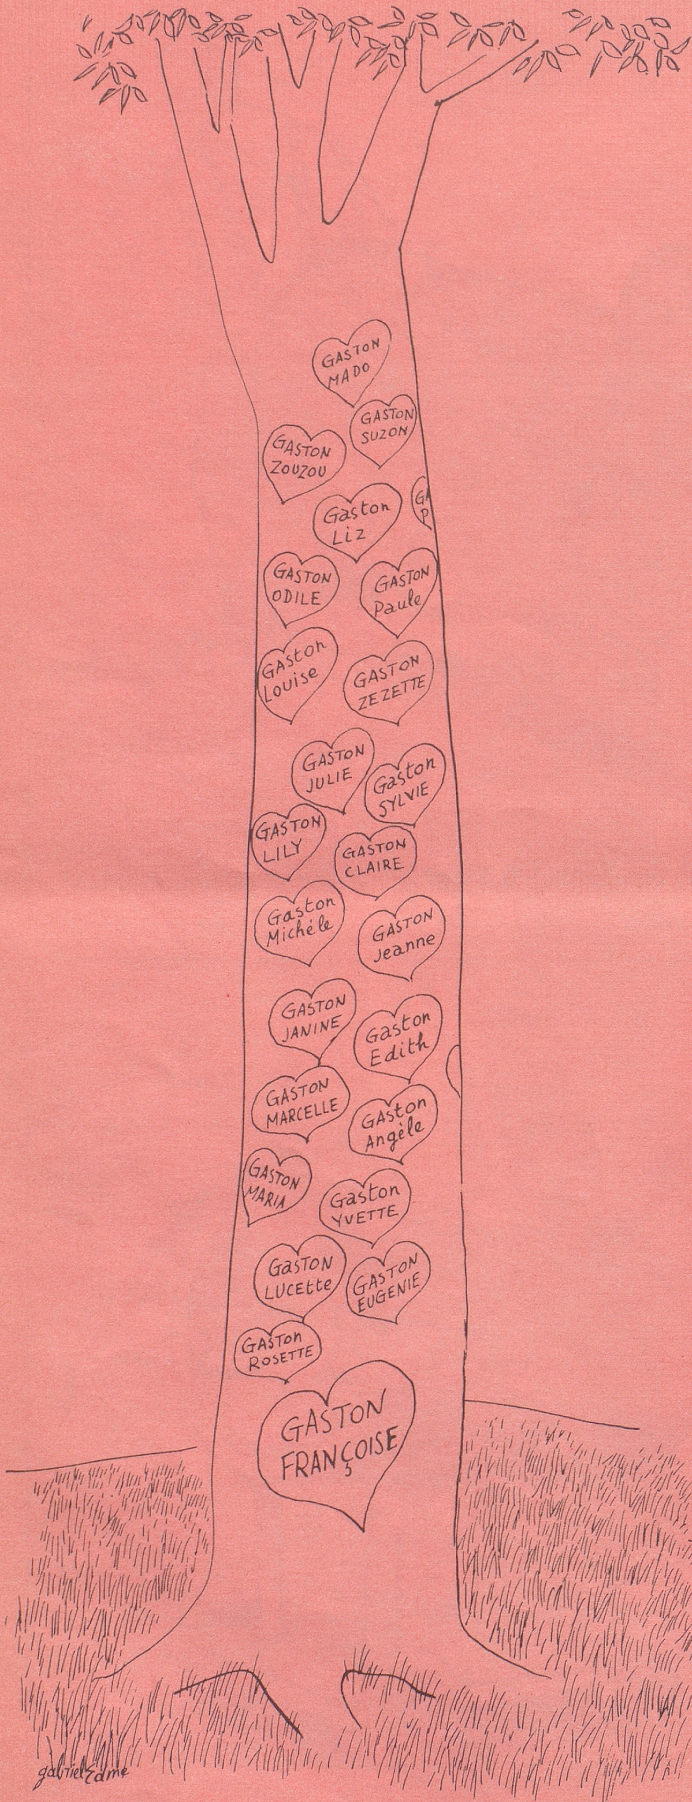 GASTON
MADO
GASTON
SUZON
GASTON
ZOUZOU
Gaston
Liz
GA
P
GASTON
ODILE
GASTON
Paule
Gaston
Louise
GASTON
ZEZETTE
GASTON
JULIE
Gaston
SYLVIE
GASTON
LILY
GASTON
CLAIRE
Gaston
Michèle
GASTON
Jeanne
GASTON
JANINE
Gaston
Edith
GASTON
MARCELLE
GASton
Angèle
GASTON
MARIA
Gaston
YVETTE
GaSTON
LUCEtte
GASTON
EUGENIE
GASTON
ROSETTE
GASTON
FRANÇOISE